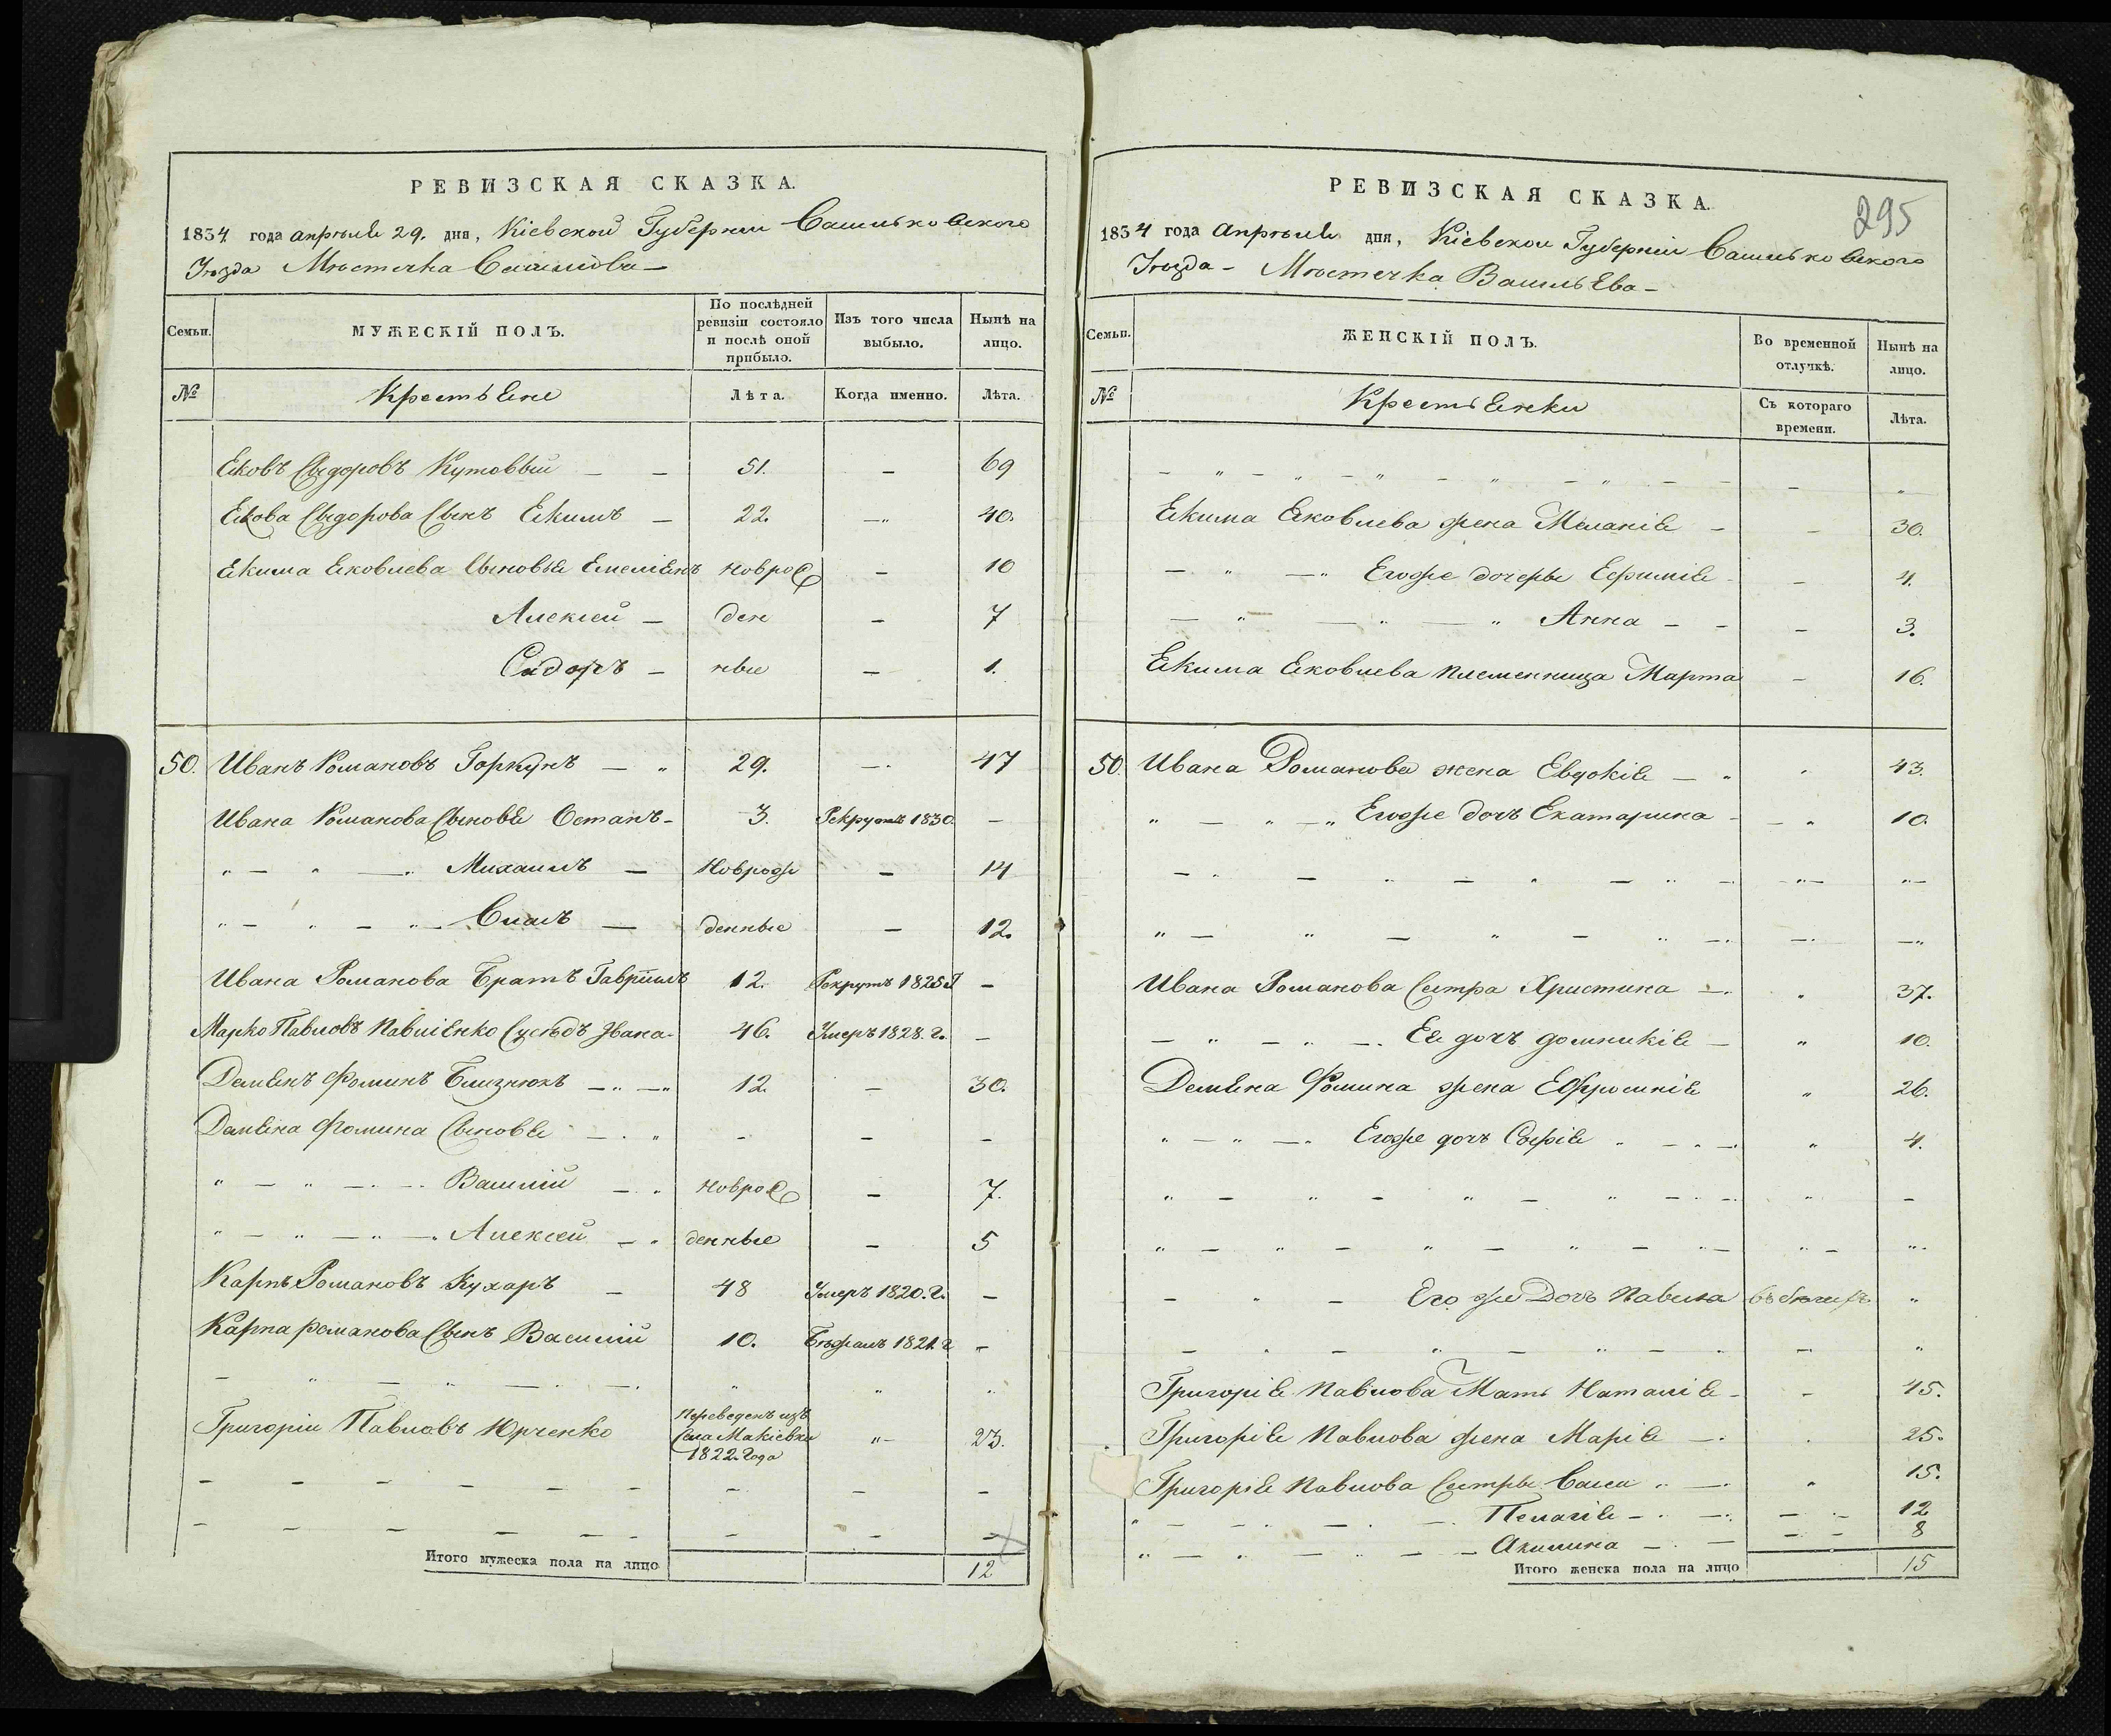 РЕВИЗСКАЯ СКАЗКА.
1834 года апрѣля 29. дня, Кіевской Губерніи Васильковскаго
Уѣзда Мѣстечка
Семьи.
МУЖЕСКІЙ ПОЛЪ.
По послѣдней ревизіи состояло и послѣ оной прибыло.
Изъ того числа выбыло.
Нынѣ на лицо.
№
Крестьяне
Лѣта.
Когда именно.
Лѣта.
Яковъ Сыдоровъ Кутовый — — 51. — 69
Якова Сыдорова Сынъ Якимъ — 22. — 40.
Якима Яковлева Сыновья Емеліянъ новро — 10
Алексей — ден — 7
Сидоръ — ные — 1.
50. Иванъ Романовъ Горкунъ — 29. — 47
Ивана Романова Сыновья Остапъ - 3. Рекрутъ 1830. —
Михаилъ — Новрож — 14
— денные — 12.
Ивана Романова Братъ Гавріилъ 12. Рекрутъ 1825 г —
Марко Павловъ Павліенко Сусѣдъ Ивана 46. Умеръ 1828. г. —
Демянъ Фоминъ Близнюкъ — 12. — 30.
Демяна Фомина Сыновья — - — -
Василій — новро — 7.
Алексей — денные — 5
Карпъ Романовъ Кухаръ — 48 Умеръ 1820. г. —
Карпа романова Сынъ Василій 10. Бѣжалъ 1821. г —
Григорій Павловъ Юрченко Переведенъ изъ Села Макіевки 1822. года „ — 23.
Итого мужеска пола на лицо 12
295
РЕВИЗСКАЯ СКАЗКА.
1834 года Апрѣля дня, Кіевской Губерніи Васильковскаго
Уѣзда - Мѣстечка Васильева -
Семьи.
ЖЕНСКІЙ ПОЛЪ.
Во временной отлучкѣ.
Нынѣ на лицо.
№
Крестьянки
Съ котораго времени.
Лѣта.
Якима Яковлева жена Меланія - - 30.
Егоже дочеры Ефимія - - 4.
Анна - - - 3.
Якима Яковлева племенница Марта - 16.
50. Ивана Романова жена Евдокія — 43.
Егоже дочъ Екатарина - 10.
Ивана Романова Сестра Христина — 37.
Ея дочъ домникія — „ 10.
Демяна Фомина жена Ефросинія „ 26.
Егоже дочъ Софія 4.
Его же Дочъ Павила въ „
Григорія Павлова Мать Наталія - - 45.
Григорія Павлова жена Марія — 25.
Григорія Павлова Сестры 15.
Пелагія — 12
Акилина — 8
Итого женска пола на лицо 15